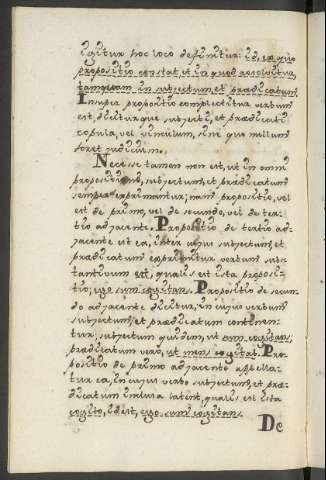 igitur hoc loco definitur: id, ex quo
propositio constat, et in quod absolvitur,
tamquam in subjectum, et prædicatum.
In super propositio complectitur verbum
est, diciturque subjecti, et prædicati
copula, vel vinculum, sine quo nullum
foret judicium.
Necesse tamen non est, ut in omni
propositione, subjectum, et prædicatum
semper exprimantur; nam propositio, vel
est de primo, vel de secundo, vel de ter-
tio adjacente. Propositio de tertio ad-
jacente est ea, inter cujus subjectum, et
prædicatum exprimitur verbum subs-
tantivum est, qualis est ista proposi-
tio; ego sum cogitans. Propositio de secun-
do adjacente dicitur, in cujus verbum
subjectum, et prædicatum continen-
tur; subjectum quidem, ut sum cogitans;
prædicatum vero, ut mens cogitat. Pro-
positio de primo adjacente appella-
tur ea, in cujus verbo subjectum, et præ-
dicatum inclusa latent, qualis est ista
cogito, id est, ego sum cogitans.
De